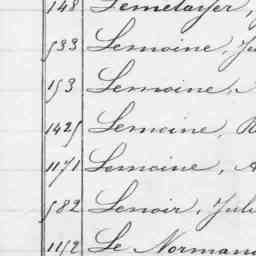 148 Lemetayer,
533 Lemoine, Ju
153 Lemoine,
1425 Lemoine,
1171 Lemoine, A
582 Lenoir, Juli
1152 Le Norman